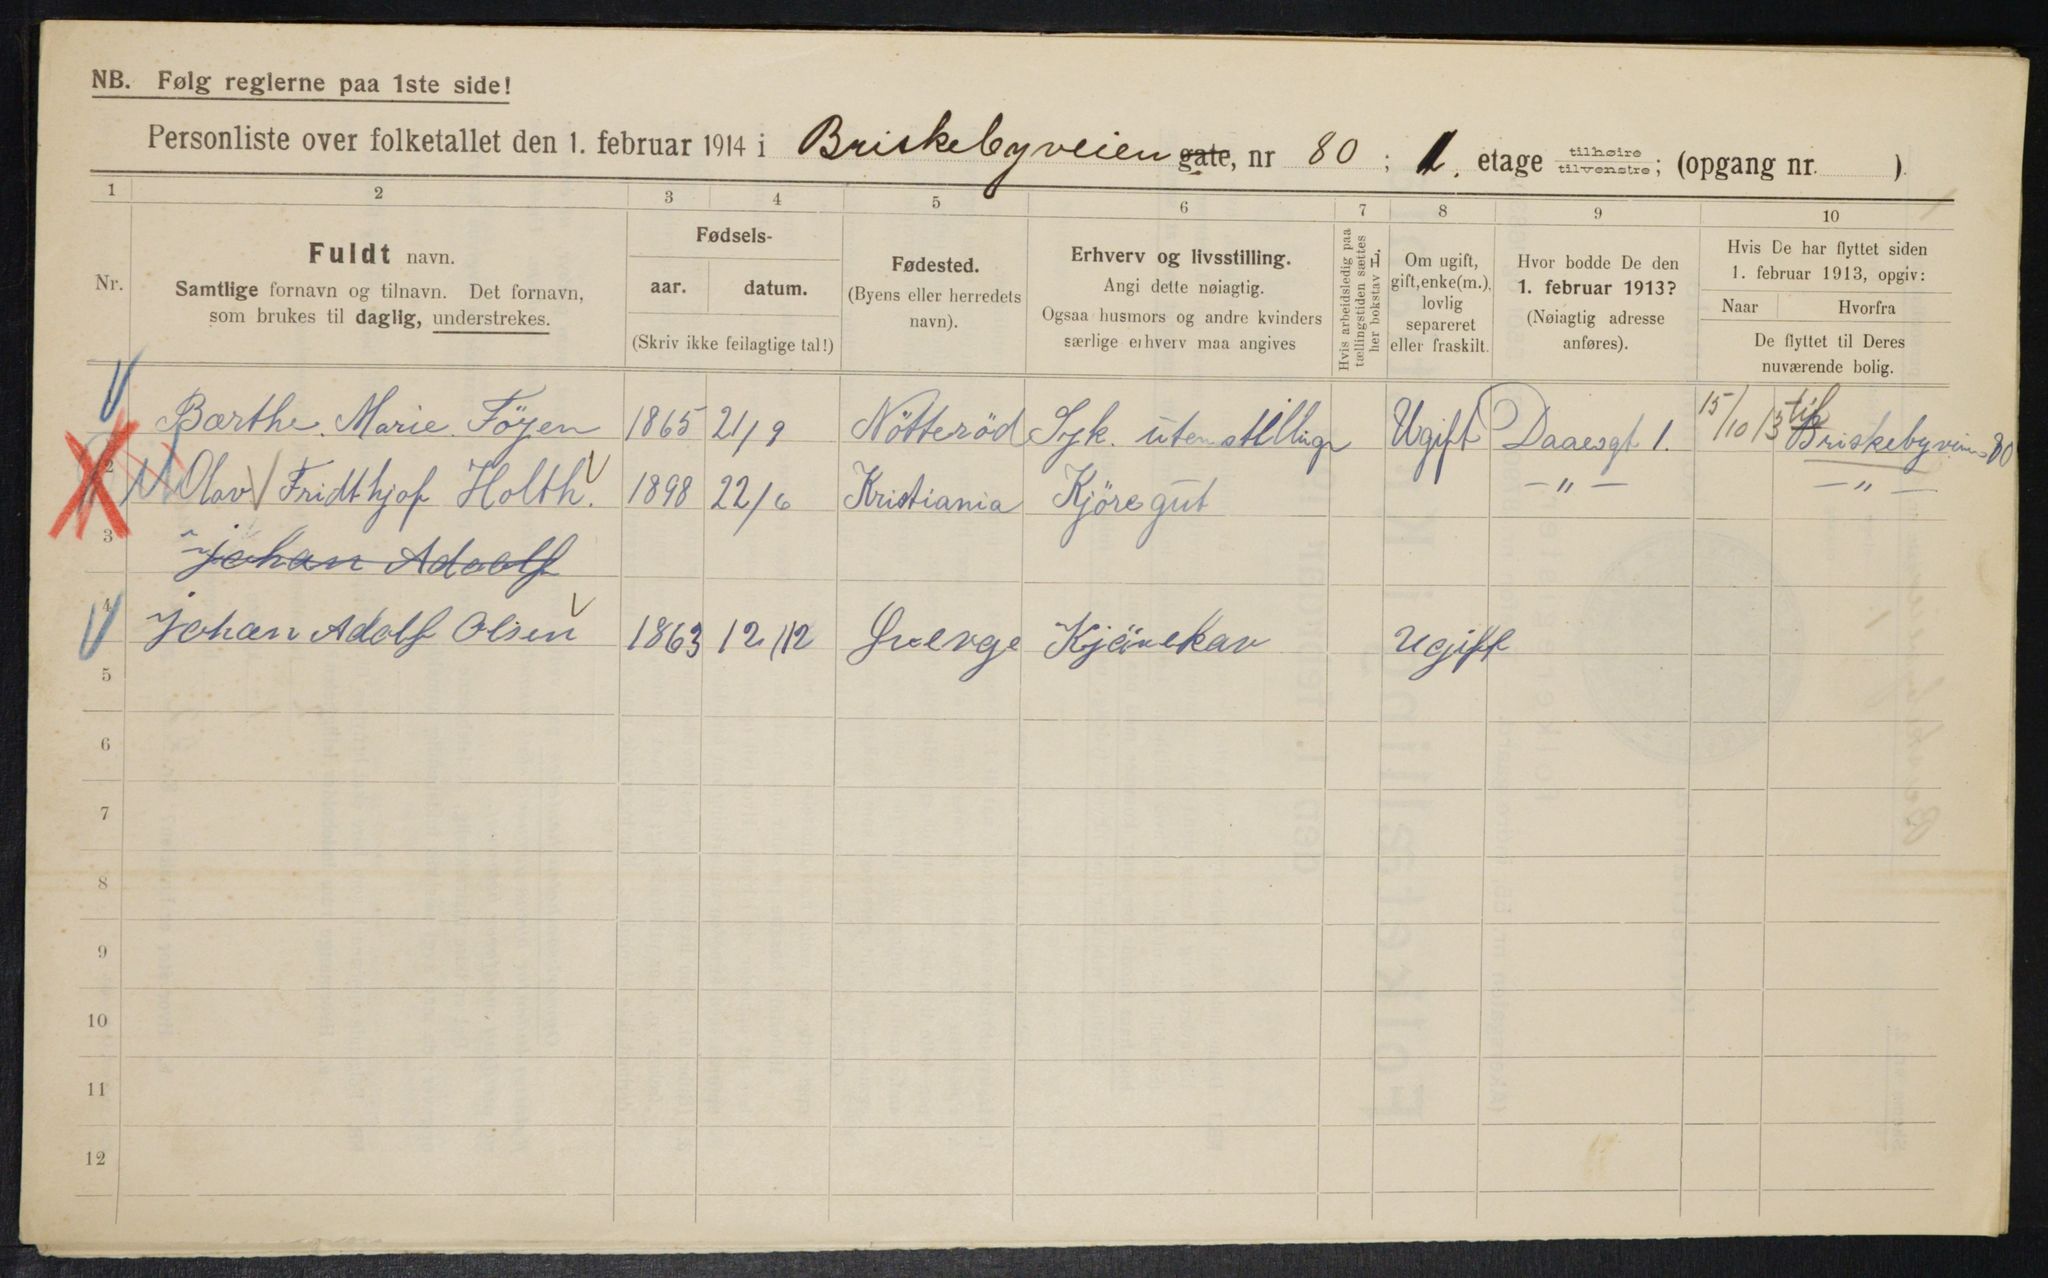 NB. Følg reglerne paa 1ste side!
Personliste over folketallet den 1. februar 1914 i Briskebyveien gate, nr 80 ; 1. etage tilhøire tilvenstre; (opgang nr. ).
1 2 3 4 5 6 7 8 9 10
Nr.
Fuldt navn.
Samtlige fornavn og tilnavn. Det fornavn,
som brukes til daglig, understrekes.
Fødsels-
aar. datum.
(Skriv ikke feilagtige tal!)
Fødested.
(Byens eller herredets
navn).
Erhverv og livsstilling.
Angi dette nøiagtig.
Ogsaa husmors og andre kvinders
særlige erhverv maa angives
Hvis arbeidsledig paa
tællingstiden sættes
her bokstav L.
Om ugift,
gift, enke(m.),
lovlig
separeret
eller fraskilt.
Hvor bodde De den
1. februar 1913?
(Nøiagtig adresse
anføres).
Hvis De har flyttet siden
1. februar 1913, opgiv:
Naar Hvorfra
De flyttet til Deres
nuværende bolig.
Bærthe. Marie. Föyen 1865 21/9 Nötteröd Syk. utenstilling Ugift Daaesgt 1. 15/10 13 til Briskebyveien 80
2 Olav Fridthjof Holth. 1898 22/6 Kristiania Kjöregut — " — — " —
3 Johan Adoolf
4 Johan Adolf Olsen 1863 12/12 Sverge Kjörekar Ugift
5
6
7
8
9
10
11
12